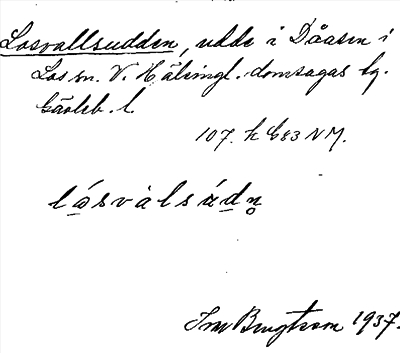 Losvallsudden, udde i Dåasen i
Los sn. V. Hälsingl. domsagas tg.
Gävleb. l.
107. k G83 NM.
låsvàlsúdn̥
Ivar Bengtsson 1937.